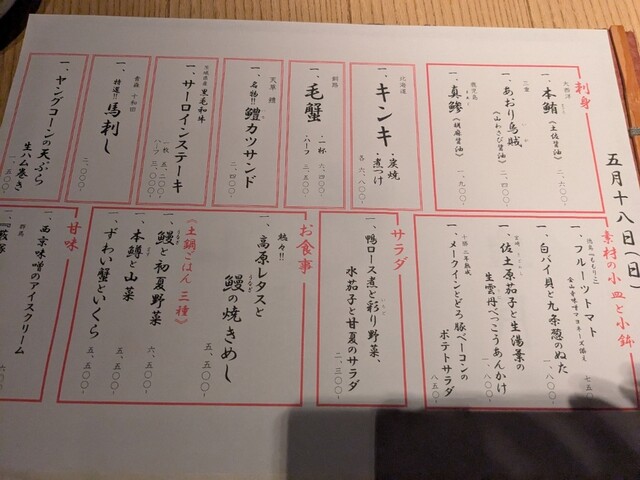 五月十八日(日)
刺身
大西洋
一、本鮪(土佐醤油)
二、六〇〇-
三重
一、あおり烏賊
(山わさび醤油)
二、四〇〇-
鹿児島
一、真鯵(胡麻醤油)
一、九〇〇-
北海道
一、キンキ ・炭焼
・煮つけ
各 六、八〇〇-
釧路
一、毛蟹 ・一杯 六、四〇〇-
・ハーフ 三、五〇〇-
天草 鱧
一、名物!!鱧カツサンド
二、四〇〇-
黒毛和牛
一、サーロインステーキ
一枚 五、二〇〇-
ハーフ 三、〇〇〇-
青森 十和田
一、特選!!馬刺し
二、〇〇〇-
一、ヤングコーンの天ぷら
生ハム巻き
一、五〇〇-
素材の小皿と小鉢
徳島(ももりこ)
一、フルーツトマト
金山寺味噌マヨネーズ添え
七五〇-
一、白バイ貝と九条葱のぬた
一、八〇〇-
宮崎
一、佐土原茄子と生湯葉の
生雲丹べっこうあんかけ
一、八〇〇-
十勝 二年熟成
一、メークインとどろ豚ベーコンの
ポテトサラダ
八五〇-
サラダ
一、鴨ロース煮と彩り野菜、
水茄子と甘夏のサラダ
二、五〇〇-
お食事
熱々!!
一、高原レタスと
鰻の焼きめし
五、五〇〇-
《土鍋ごはん 三種》
一、鰻と和夏野菜
六、五〇〇-
一、本鱒と山菜
五、五〇〇-
一、ずわい蟹といくら
五、五〇〇-
甘味
一、西京味噌のアイスクリーム
群馬